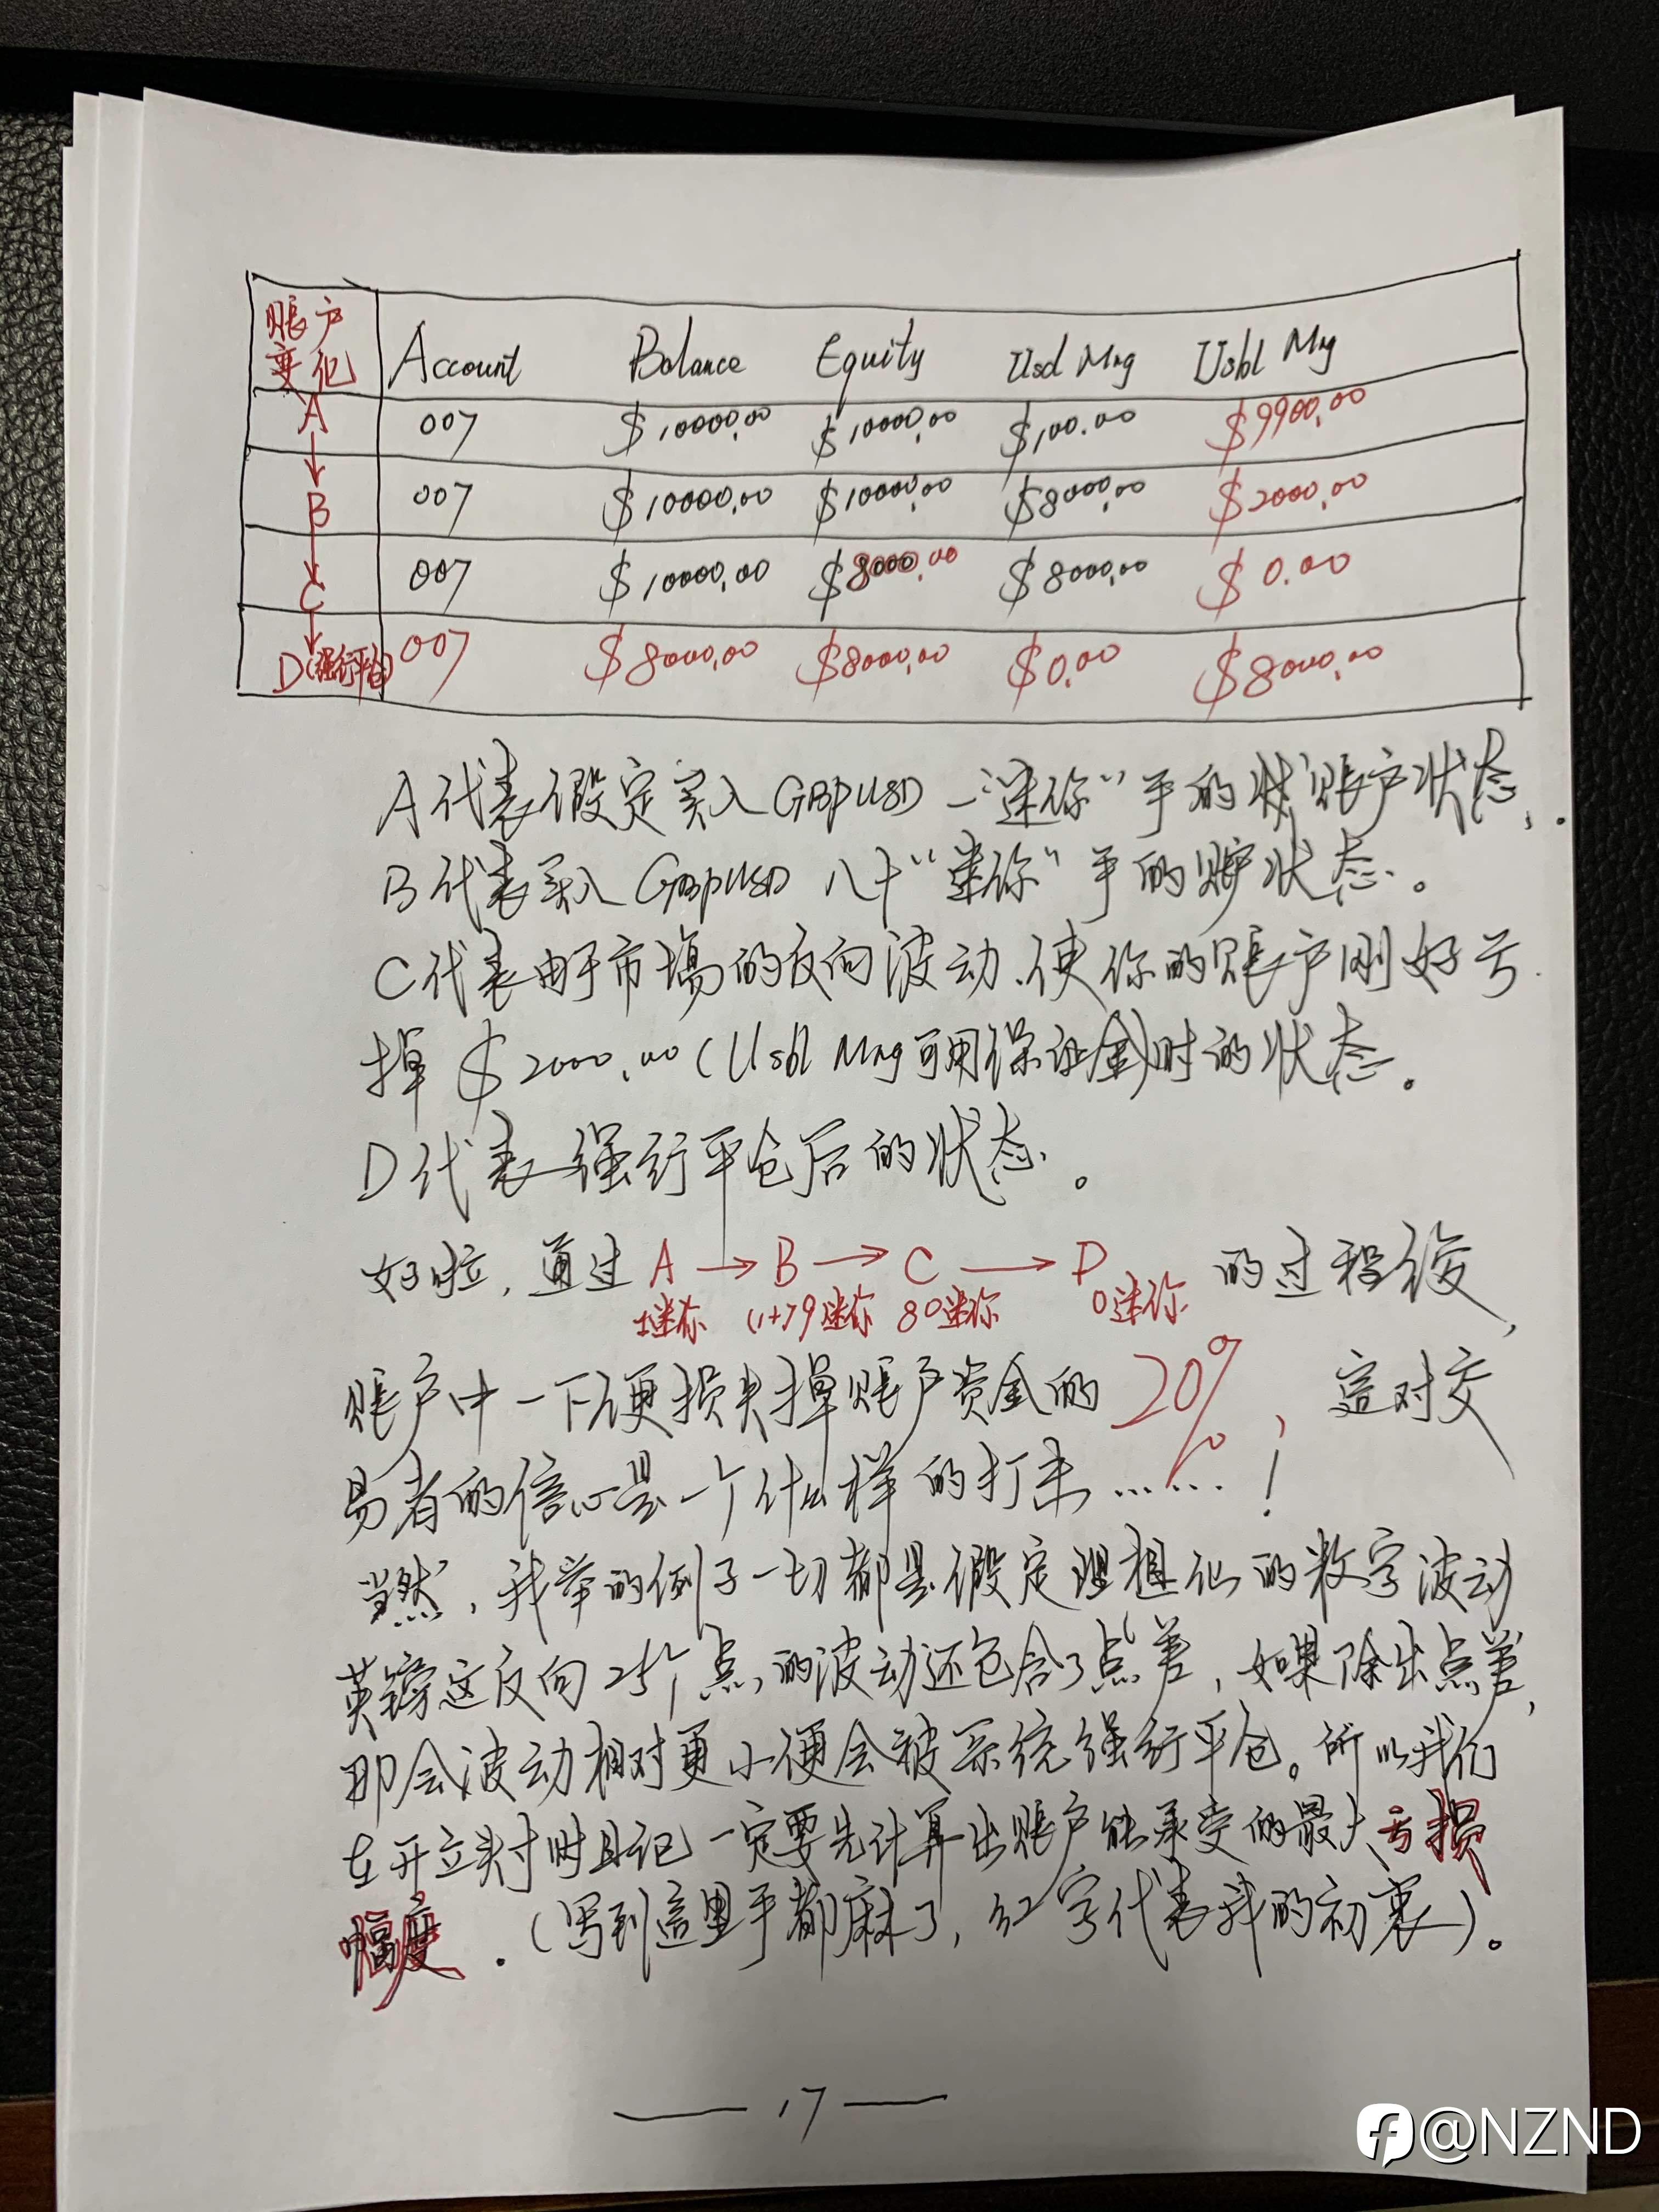 賬户变化 Account Balance Equity Usd Mrg Usbl Mrg
A 007 $10000.00 $10000.00 $100.00 $9900.00
B 007 $10000.00 $10000.00 $8000.00 $2000.00
C 007 $10000.00 $8000.00 $8000.00 $0.00
D(强行平仓) 007 $8000.00 $8000.00 $0.00 $8000.00
A代表假定买入GBPUSD一“迷你”手的状賬户状态.
B代表买入GBPUSD八十“迷你”手的賬户状态。
C代表由于市場的反向波动、使你的賬户刚好亏
掉$2000.00(Usbl Mrg可用保证金)时的状态。
D代表强行平仓后的状态。
好啦,通过A→B→C→D的过程後,
1迷你 (1+79迷你 80迷你 0迷你
賬户中一下便损失掉賬户资金的20%,這对交
易者的信心是一个什么样的打击……!
当然,我举的例子一切都是假定理想化的数字波动
英镑这反向25个点的波动还包含了点差,如果除出点差,
那会波动相对更小便会被系统强行平仓。所以我们
在开立头寸时且记一定要先计算出賬户能承受的最大亏损
幅度.(写到這里手都麻了,红字代表我的初衷)。
17
@NZND